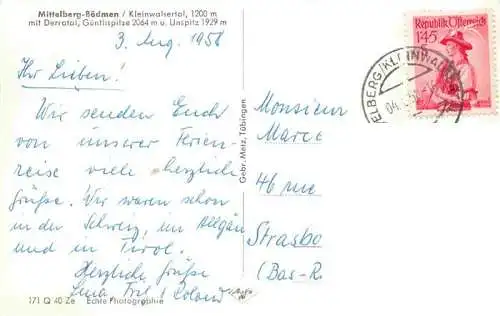 Mittelberg-Bödmen / Kleinwalsertal, 1200 m
mit Derratal, Güntlispitze 2064 m u. Unspitz 1929 m
3. Aug. 1958
Ihr Lieben!
Wir senden Euch
von unserer Ferien-
reise viele herzliche
Grüße. Wir waren schon
in der Schweiz, im Allgäu
und in Tirol.
Herzliche Grüße
Lena
171 Q 40 Ze Echte Photographie
Gebr. Metz, Tübingen
Republik Österreich
1.45
ELBERG/KLEINWAL
04.
Monsieur
Marce
46 rue
Strasbo
(Bas-R